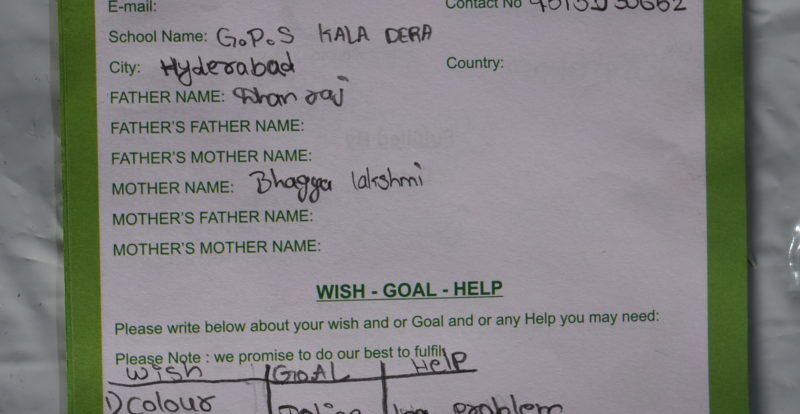 E-mail: Contact No
School Name: G.P.S KALA DERA
City: Hyderabad Country:
FATHER NAME: Dhan raj
FATHER'S FATHER NAME:
FATHER'S MOTHER NAME:
MOTHER NAME: Bhagya lakshmi
MOTHER'S FATHER NAME:
MOTHER'S MOTHER NAME:
WISH - GOAL - HELP
Please write below about your wish and or Goal and or any Help you may need:
Please Note : we promise to do our best to fulfil
WISH GOAL HELP
1) Colour problem